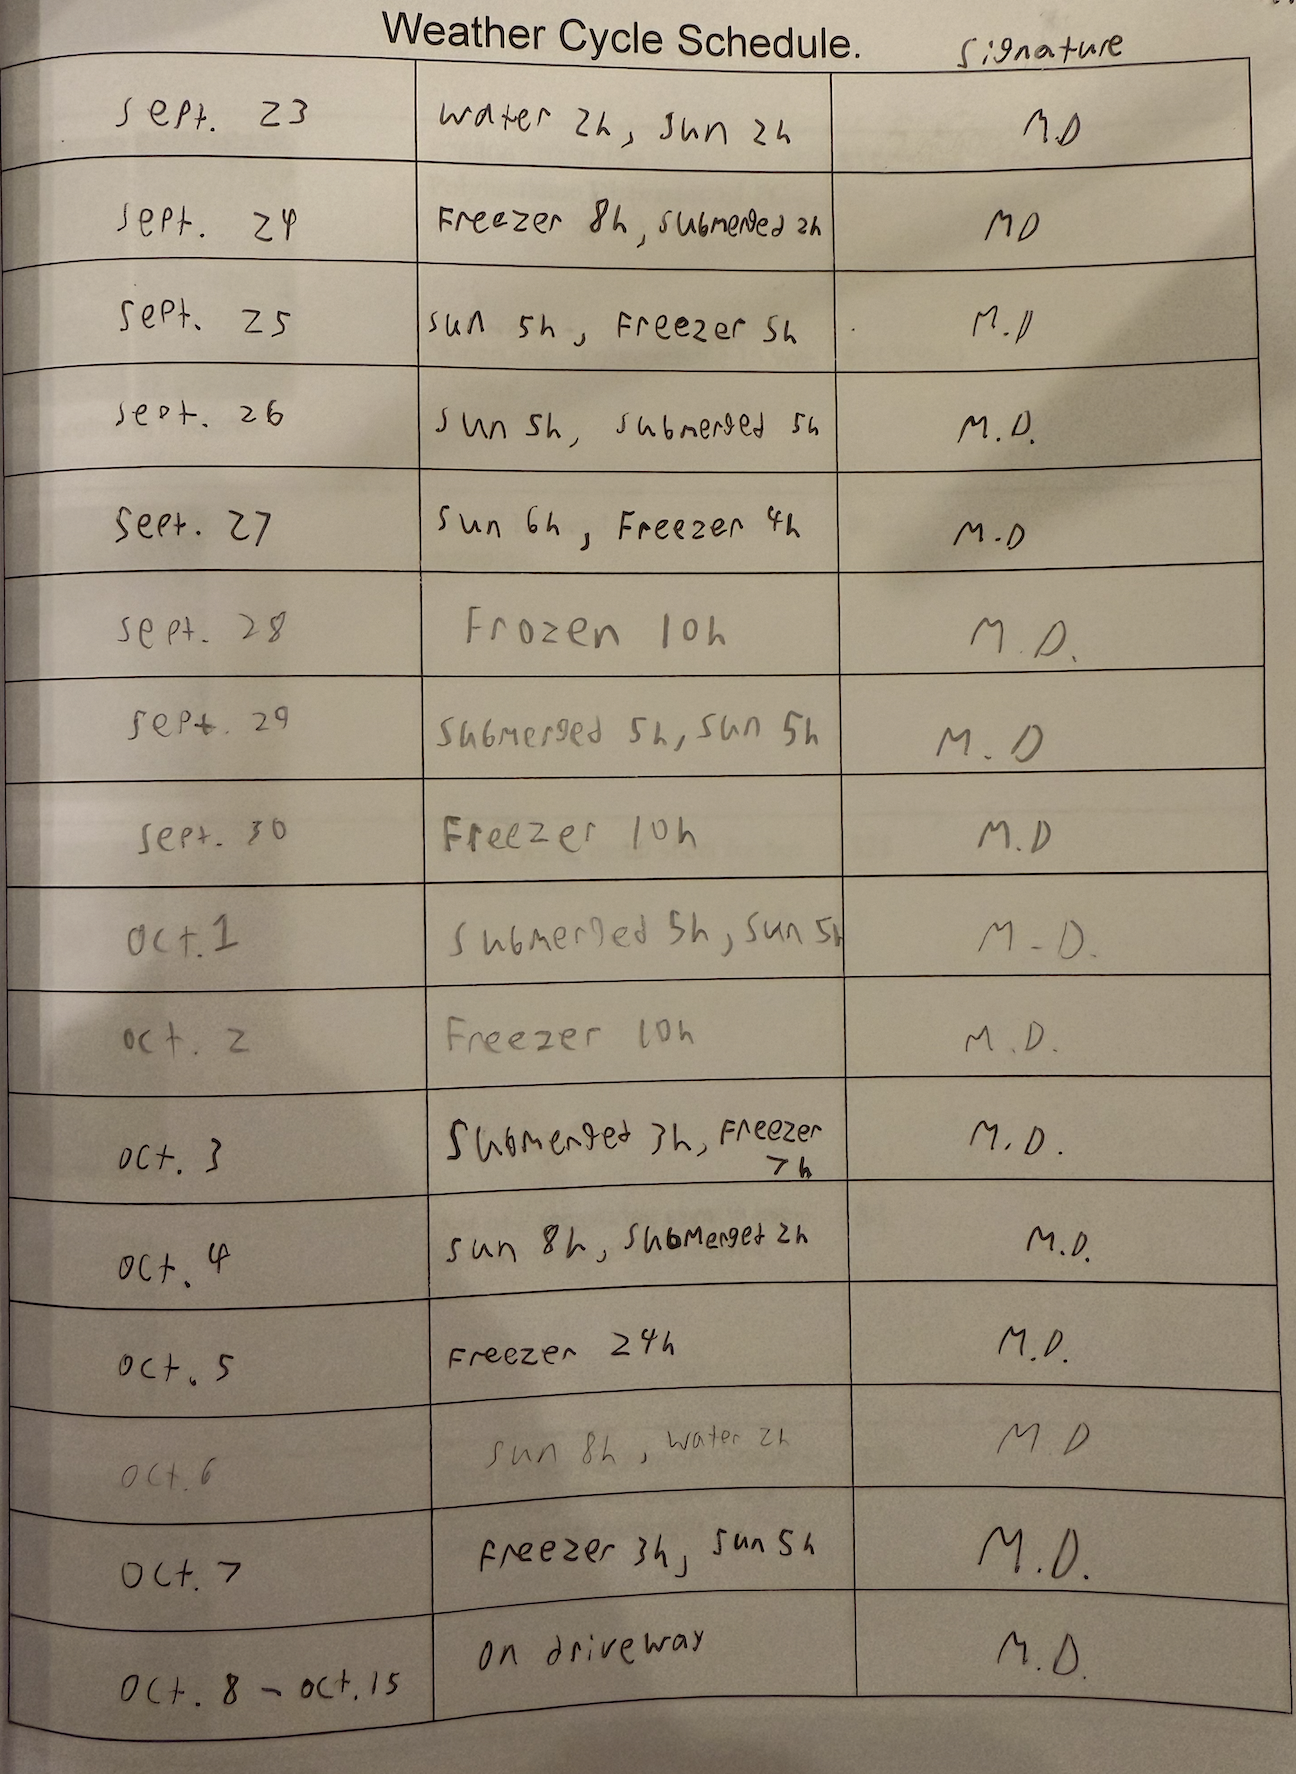 Weather Cycle Schedule. Signature
Sept. 23 water 2h, Sun 2h M.D
Sept. 24 Freezer 8h, submerged 2h MD
Sept. 25 Sun 5h, Freezer 5h M.D
Sept. 26 Sun 5h, submerged 5h M.D.
Sept. 27 Sun 6h, Freezer 4h M.D
Sept. 28 Frozen 10h M.D.
Sept. 29 Submerged 5h, Sun 5h M.D
Sept. 30 Freezer 10h M.D
Oct. 1 Submerged 5h, Sun 5h M-D.
Oct. 2 Freezer 10h M.D.
Oct. 3 Submerged 3h, Freezer
7h M.D.
Oct. 4 Sun 8h, Submerged 2h M.D.
Oct. 5 Freezer 24h M.D.
Oct. 6 Sun 8h, water 2h M.D
Oct. 7 Freezer 3h, Sun 5h M.D.
Oct. 8 - Oct. 15 On driveway M.D.